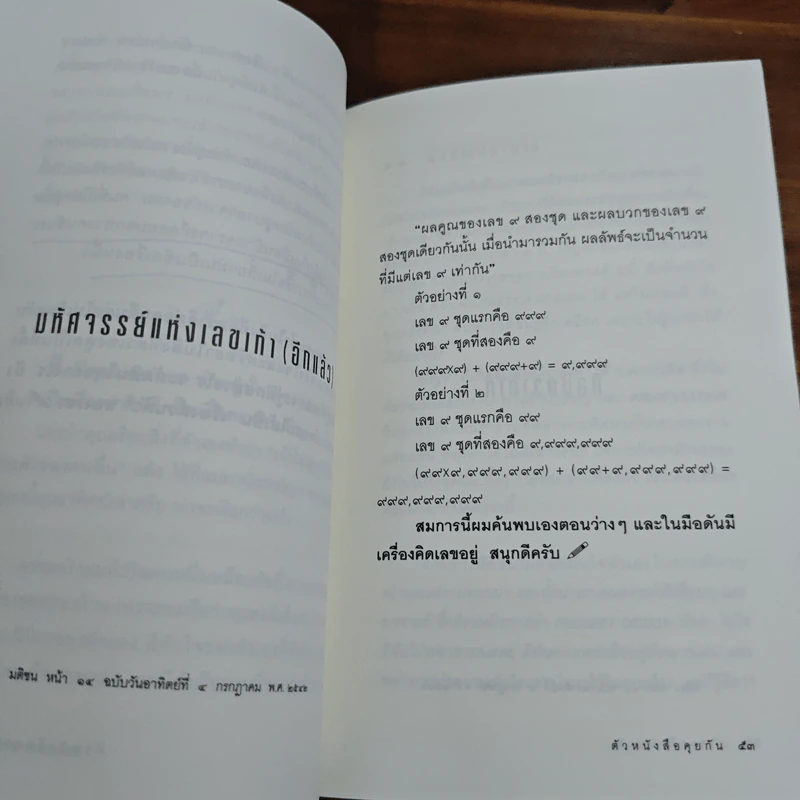 มหัศจรรย์แห่งเลขเก้า (อีกแล้ว)
มติชน หน้า ๑๔ ฉบับวันอาทิตย์ที่ ๔ กรกฎาคม พ.ศ. ๒๕๔๒
"ผลคูณของเลข ๙ สองชุด และผลบวกของเลข ๙
สองชุดเดียวกันนั้น เมื่อนำมารวมกัน ผลลัพธ์จะเป็นจำนวน
ที่มีแต่เลข ๙ เท่ากัน"
ตัวอย่างที่ ๑
เลข ๙ ชุดแรกคือ ๙๙๙
เลข ๙ ชุดที่สองคือ ๙
(๙๙๙x๙) + (๙๙๙+๙) = ๙,๙๙๙
ตัวอย่างที่ ๒
เลข ๙ ชุดแรกคือ ๙๙
เลข ๙ ชุดที่สองคือ ๙,๙๙๙,๙๙๙
(๙๙x๙,๙๙๙,๙๙๙) + (๙๙+๙,๙๙๙,๙๙๙) =
๙๙๙,๙๙๙,๙๙๙
สมการนี้ผมค้นพบเองตอนว่างๆ และในมือดันมี
เครื่องคิดเลขอยู่ สนุกดีครับ
ตัวหนังสือคุยกัน ๕๓